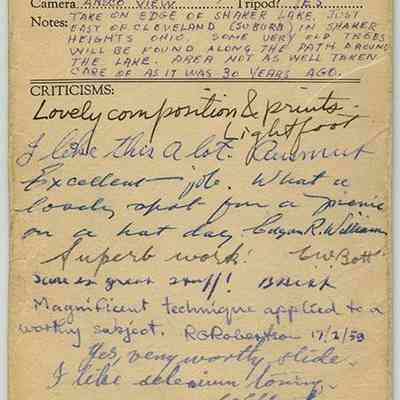 Camera ANSCO VIEW Tripod? YES
Notes: TAKE ON EDGE OF SHAKER LAKE, JUST
EAST OF CLEVELAND (SUBURB) IN SHAKER
HEIGHTS OHIO, SOME VERY OLD TREES
WILL BE FOUND ALONG THE PATH AROUND
THE LAKE. AREA NOT AS WELL TAKEN
CARE OF AS IT WAS 30 YEARS AGO.
CRITICISMS:
Lovely composition & prints.
Lightfoot
I like this a lot.
Excellent job. What a
lovely spot for a picnic
on a hot day Edgar R. William
Superb work! C.W. Bott
great stuff!
Magnificent technique applied to a
worthy subject. RG Robertson 17/2/53
Yes, very worthy slide.
I like selenium toning.